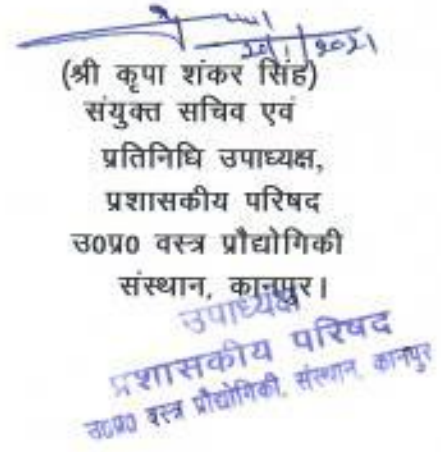 (श्री कृपा शंकर सिंह)
संयुक्त सचिव एवं
प्रतिनिधि उपाध्यक्ष,
प्रशासकीय परिषद
उ0प्र0 वस्त्र प्रौद्योगिकी
संस्थान, कानपुर।
उपाध्यक्ष
प्रशासकीय परिषद
उ0प्र0 वस्त्र प्रौद्योगिकी, संस्थान, कानपुर